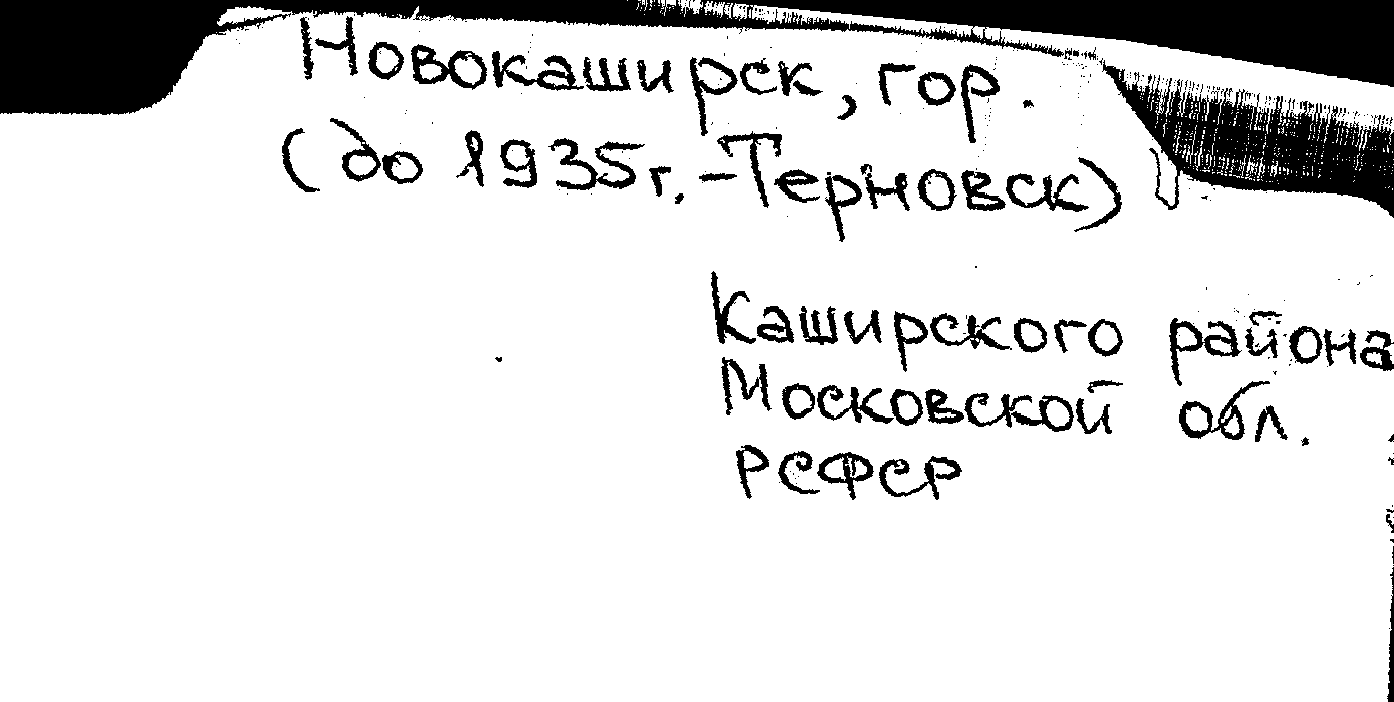 Новокаширск, гор.
(до 1935г. - Терновск)
Каширского района
Московской обл.
РСФСР